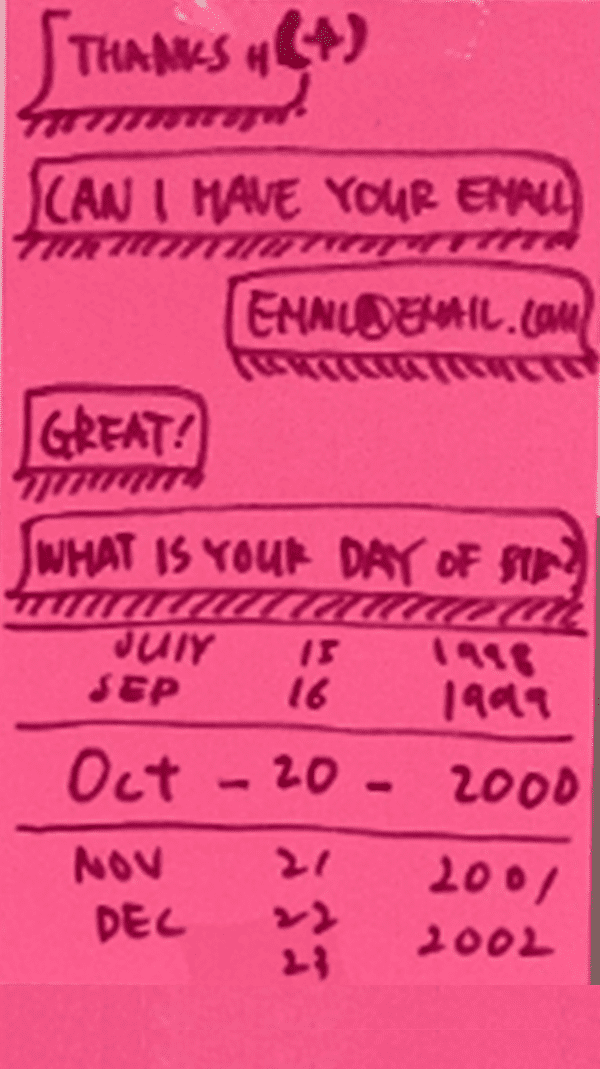 THANKS
CAN I HAVE YOUR EMAIL
EMAIL@EMAIL.COM
GREAT!
WHAT IS YOUR DAY OF
JULY 15 1998
SEP 16 1999
Oct - 20 - 2000
NOV 21 2001
DEC 22 2002
23